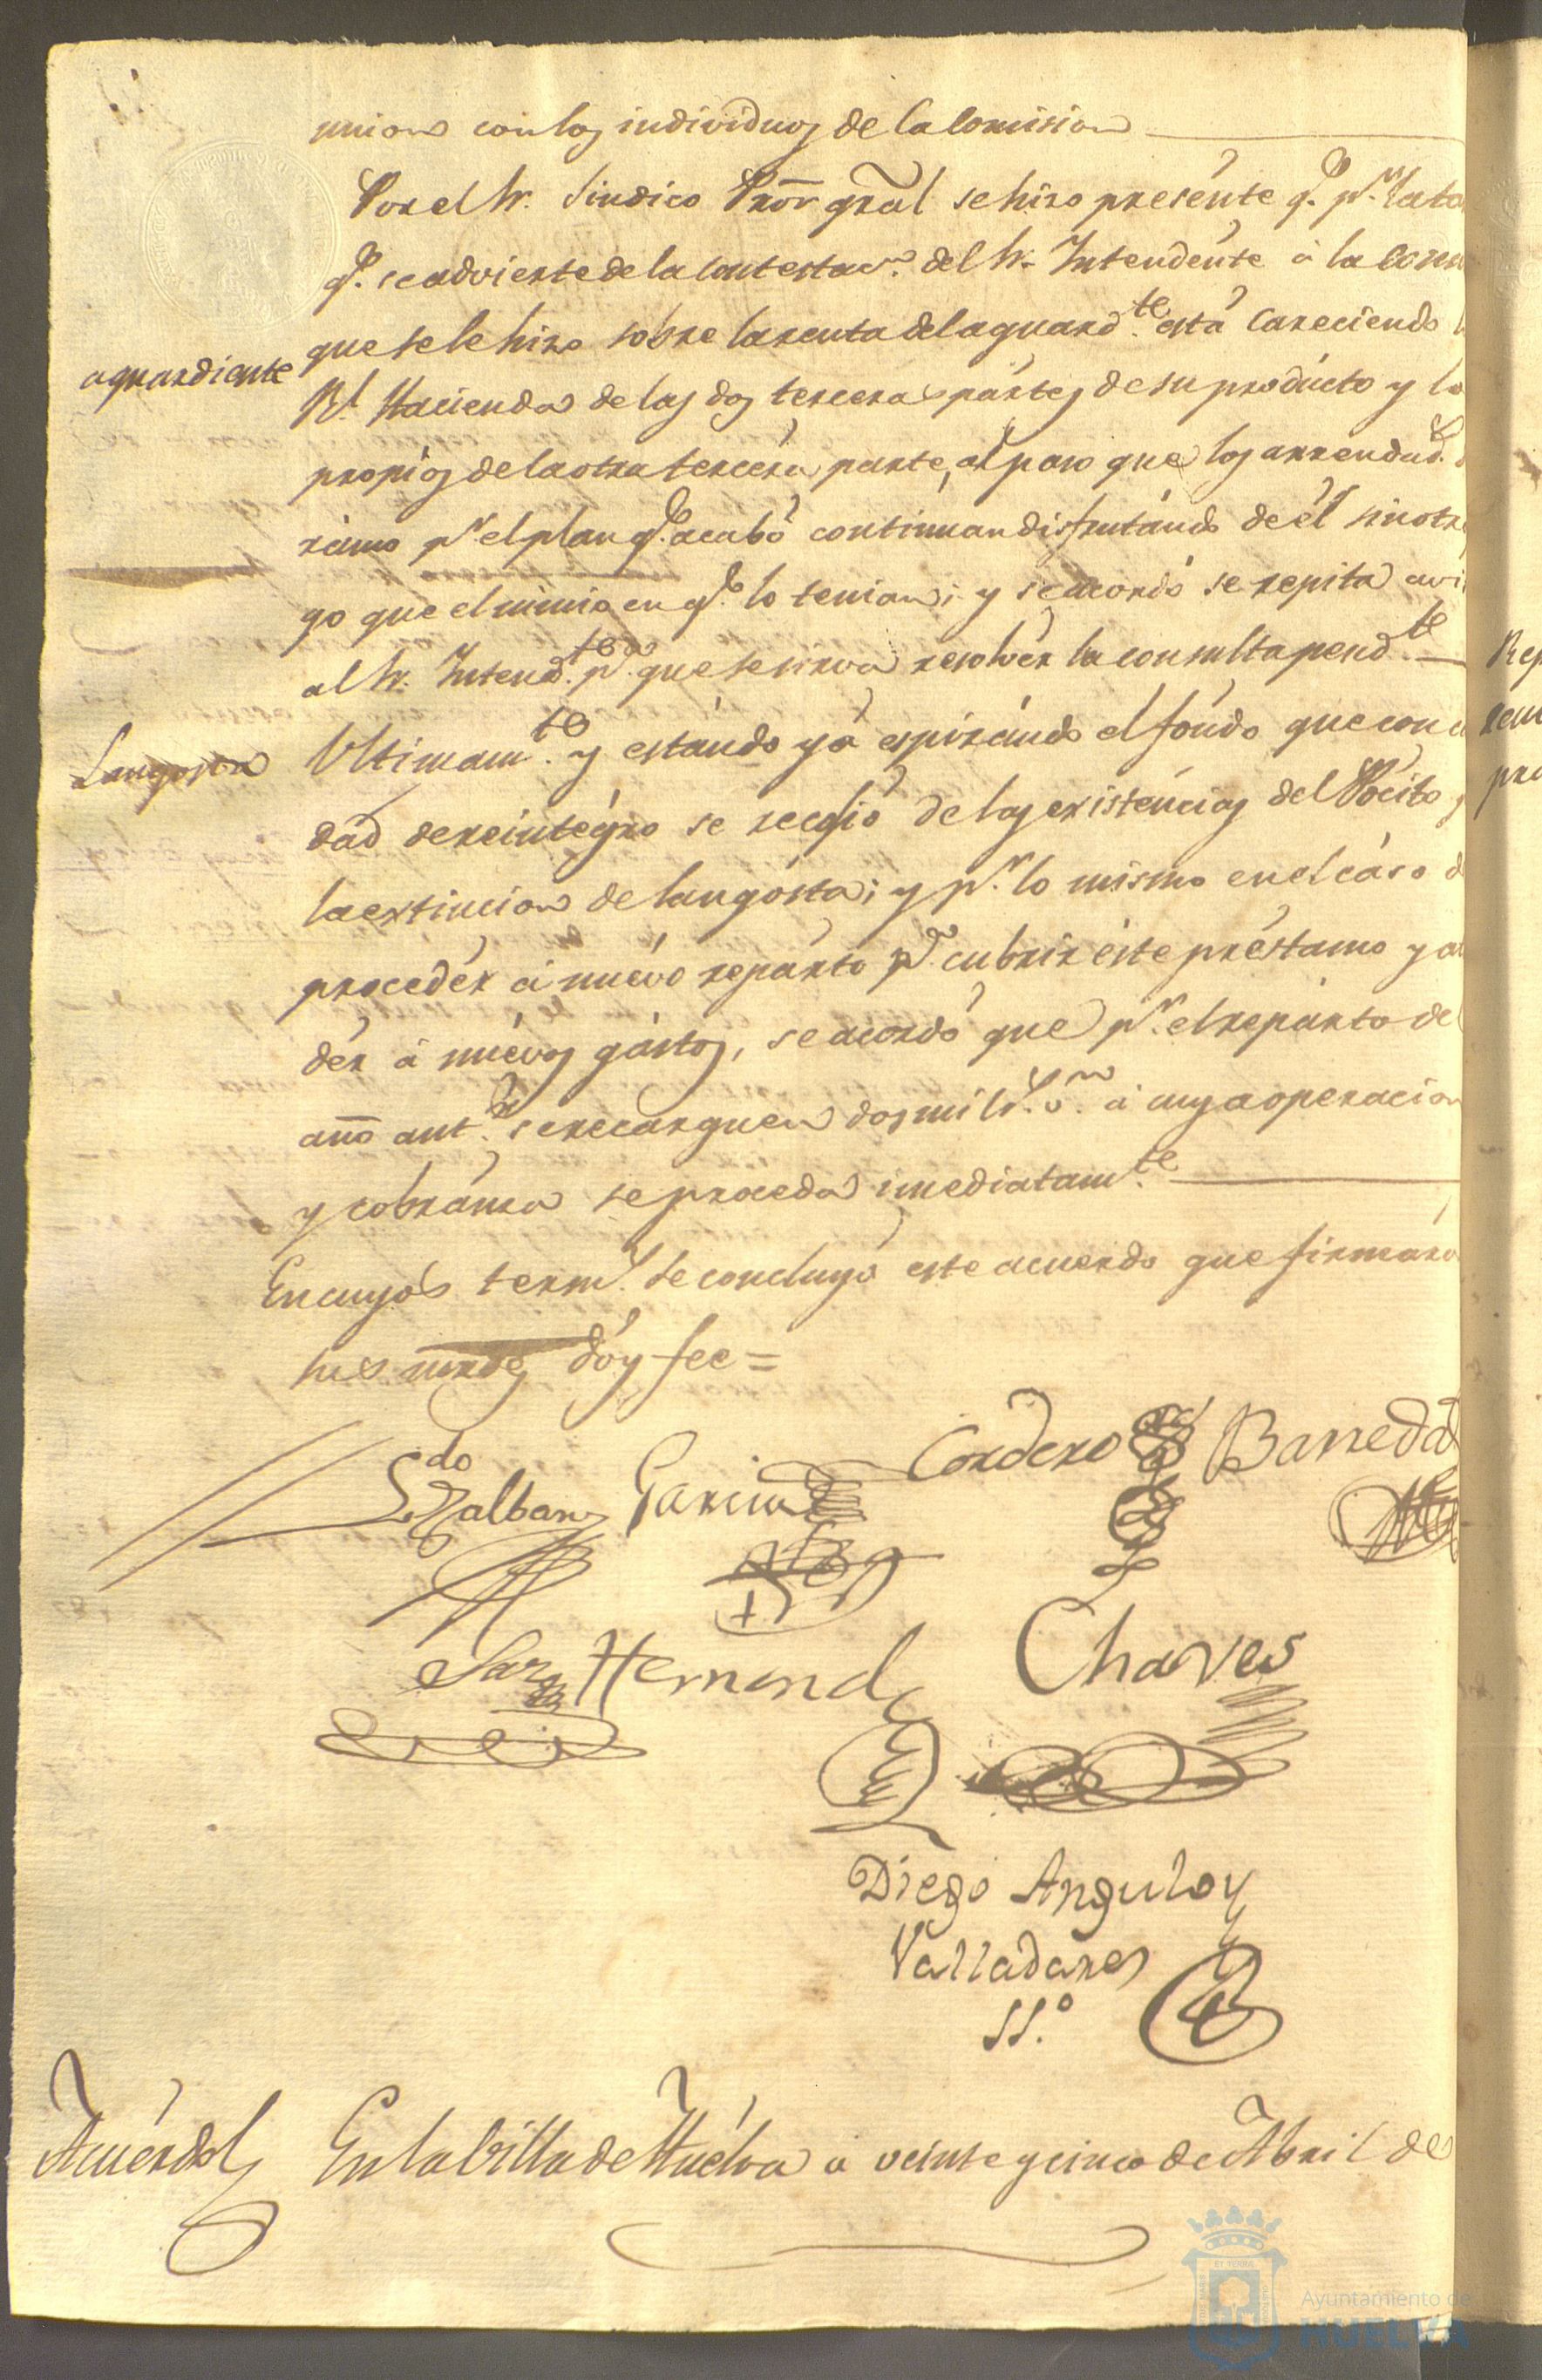 union con los individuos de la Comision
Por el Sr. Sindico Prōr grāl se hizo presente q.e p.r la ta
q.e se advierte de la contestac.n del Sr. Intendente á la Con
que se le hizo sobre la renta del aguard.te está careciendo l
aguardiente
Rl. Hacienda de las dos terceras partes de su producto y lo
propios de la otra tercera parte, al paso que los arrendad.s
ramo p.r el plan q.e acabó continúan disfrutándo de él sin otr
go que el mimio en q.e lo tenian; y se acordó se repita avi
al Sr. Intend.te p.a que se sirva resolver la consulta pend.te
Langosta
Ultimam.te y estándo yá espirándo el fóndo que con c
dád de reintégro se recojió de las existéncias del Pócito p
la extincion de langósta; y p.r lo mismo en el cáso d
procedér á nuévo repárto p.a cubrir éste préstamo y a
dér á nuévos gástos, se acordó que p.r el repárto del
año ant.r se recarguen dos mil r.s v.n á cuya operacion
y cobránza se proceda imediatam.te
En cuyos term.s se concluyó este acuerdo que firmáro
sus mrdes dóy fee =
L.do Zalban
Garcia
Cordero
Barreda
Saez
Hernand
Chaves
Diego Angulo y
Valladares
SS.o
Acuérdo
En la billa de Huélva á veinte y cinco de Abril de
Rep
pro
Ayuntamiento de
HUELVA